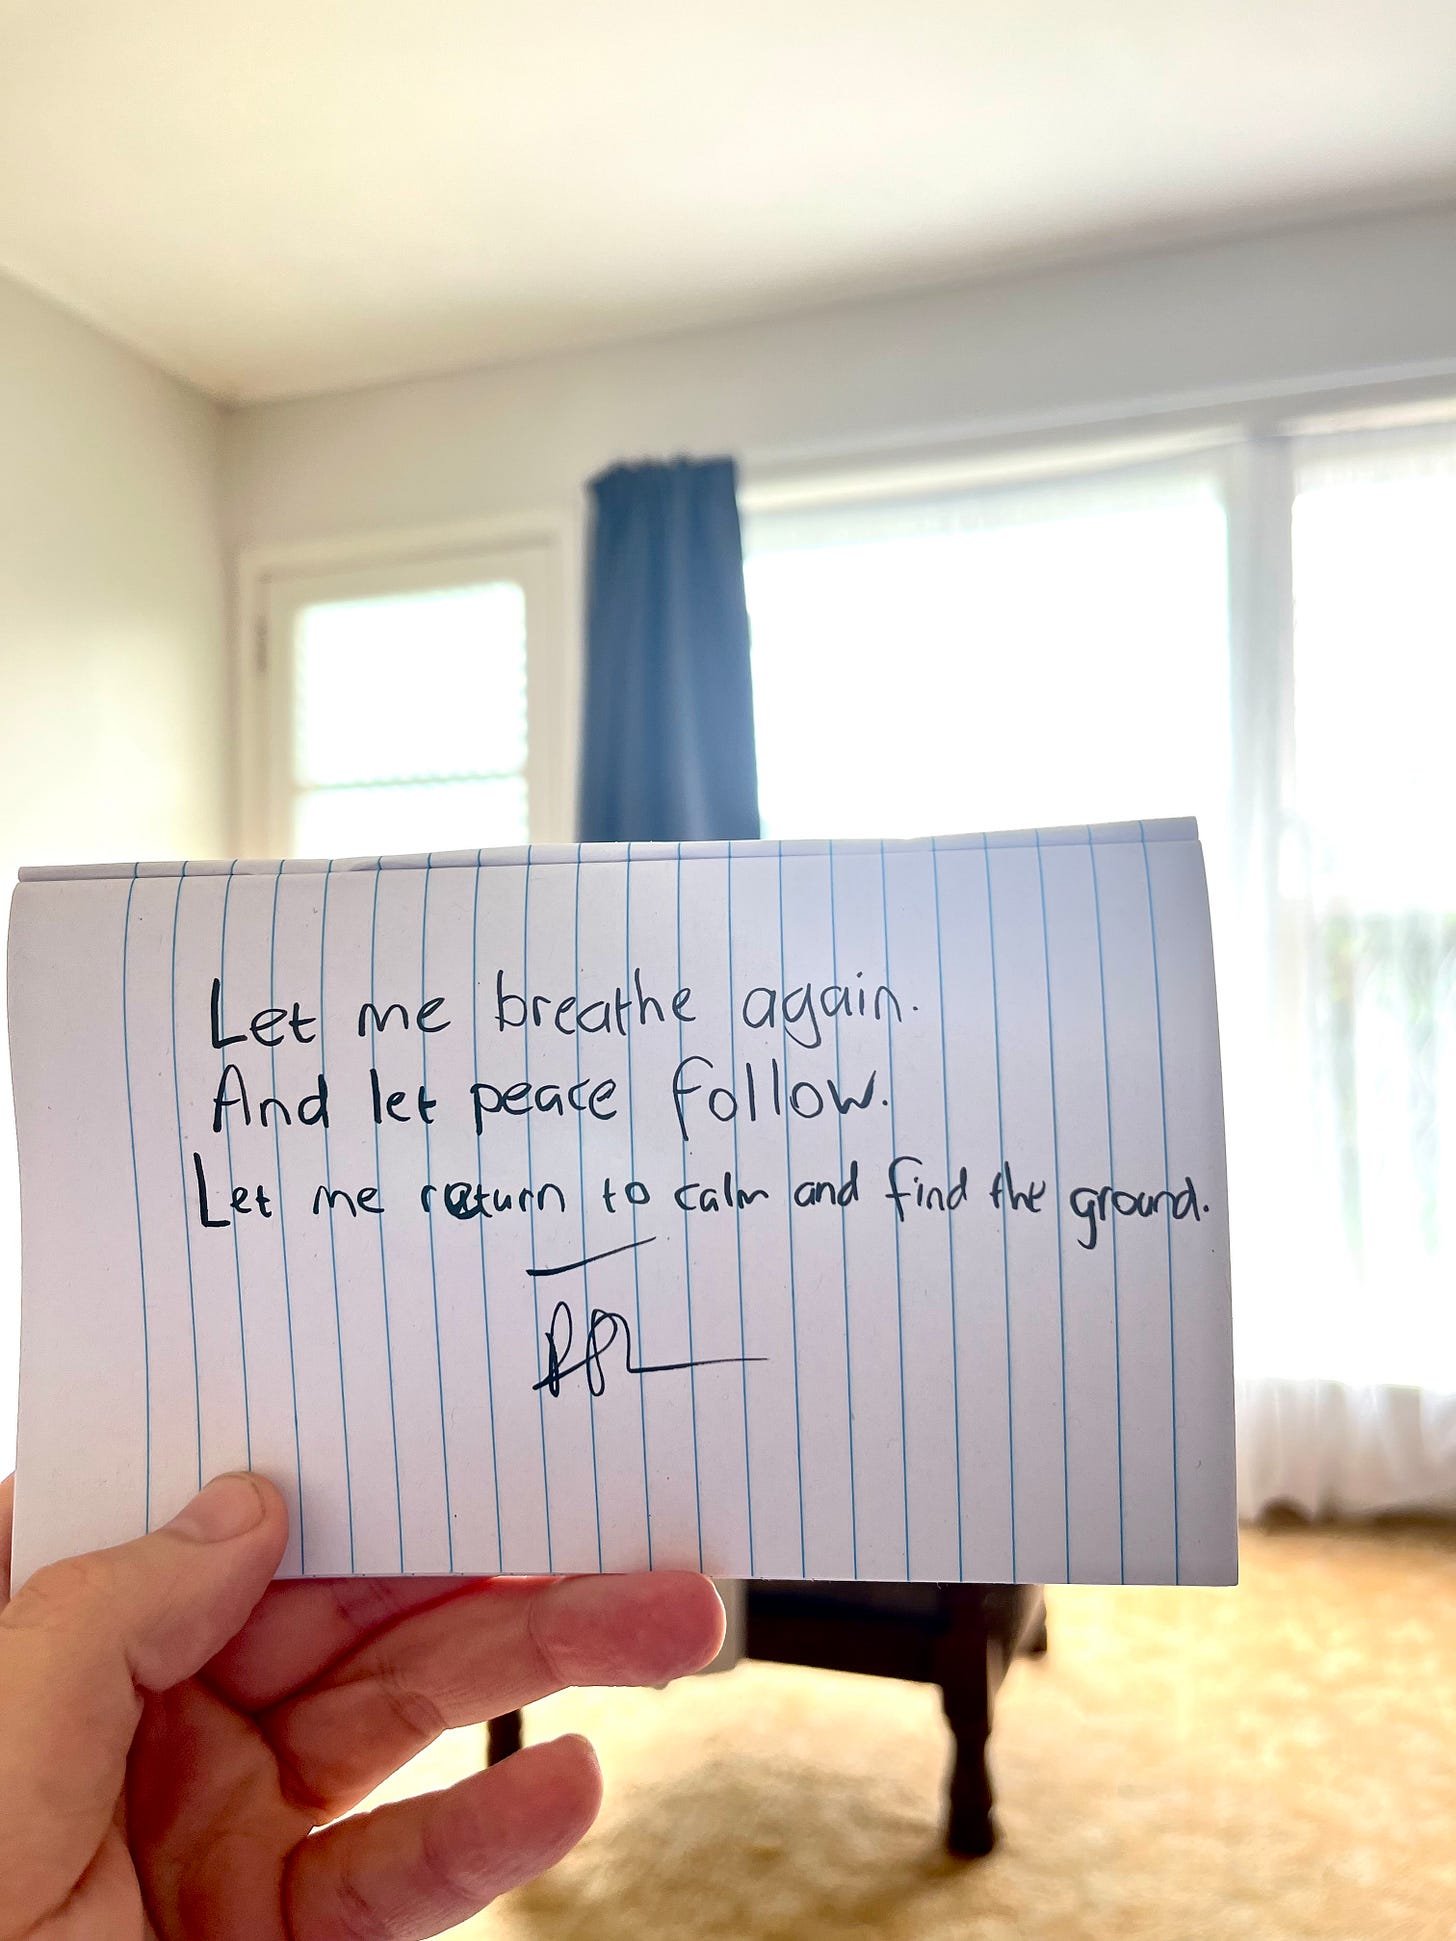 Let me breathe again.
And let peace follow.
Let me return to calm and find the ground.